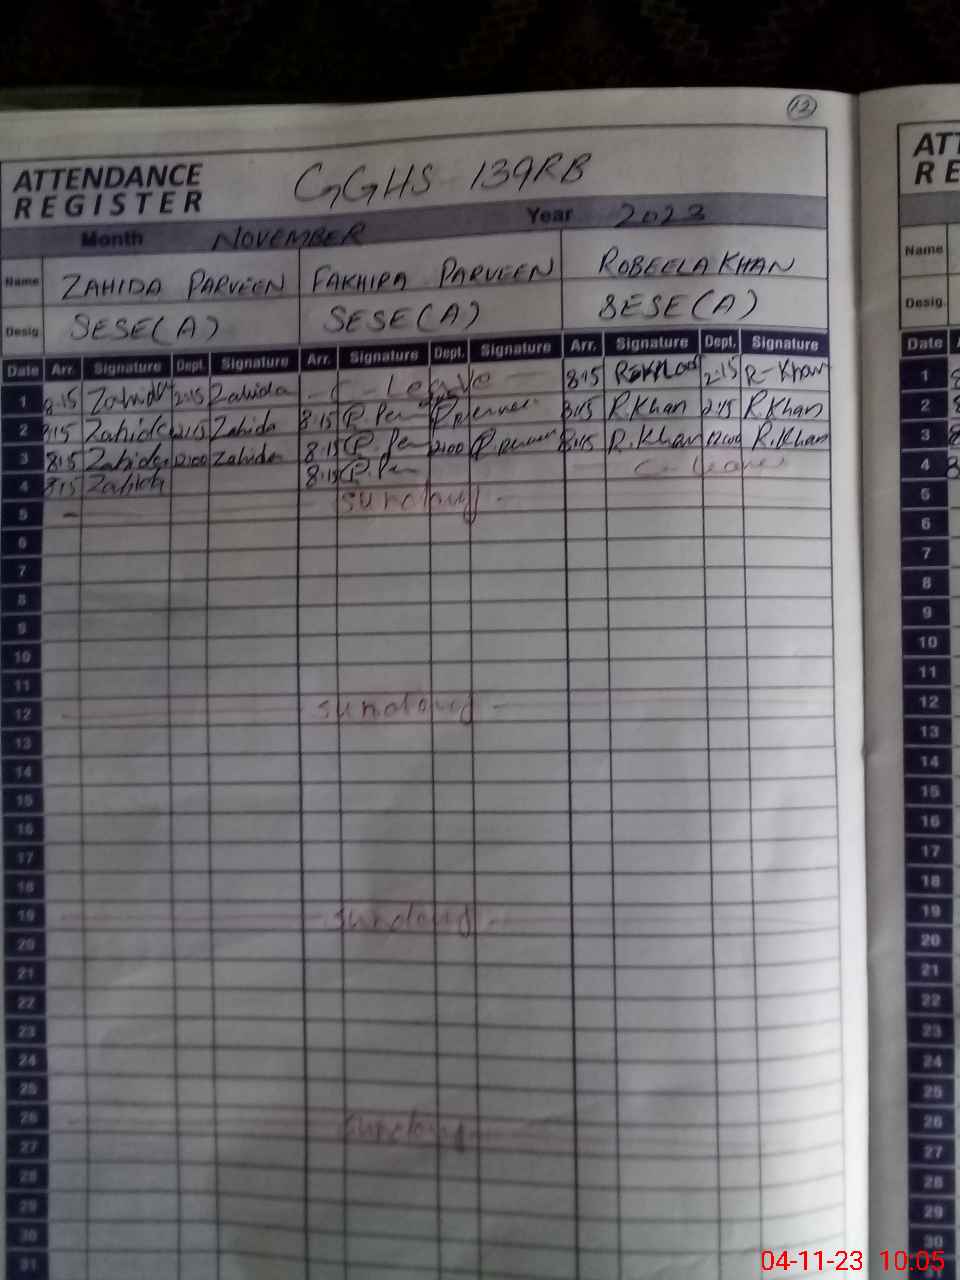 12
ATTENDANCE REGISTER GGHS 139RB
Month NOVEMBER Year 2023
Name ZAHIDA PARVEEN FAKHIRA PARVEEN ROBEELA KHAN
Desig. SESE(A) SESE(A) SESE(A)
Date Arr. Signature Dept. Signature Arr. Signature Dept. Signature Arr. Signature Dept. Signature
1 8:15 Zahida 2:15 Zahida C-Leave 8:15 2:15 R-Khan
2 8:15 Zahida 2:15 Zahida 8:15 8:15 R.Khan 2:15 R.Khan
3 8:15 Zahida 12:00 Zahida 8:15 12:00 8:15 R.Khan 12:00 R.Khan
4 8:15 Zahida 8:15 C-leave
5 - sunday -
6
7
8
9
10
11
12 sunday -
13
14
15
16
17
18
19 sunday -
20
21
22
23
24
25
26 sunday
27
28
29
30
31
ATT
RE
Name
Desig.
Date
1
2
3
4
5
6
7
8
9
10
11
12
13
14
15
16
17
18
19
20
21
22
23
24
25
26
27
28
29
30
04-11-23 10:05